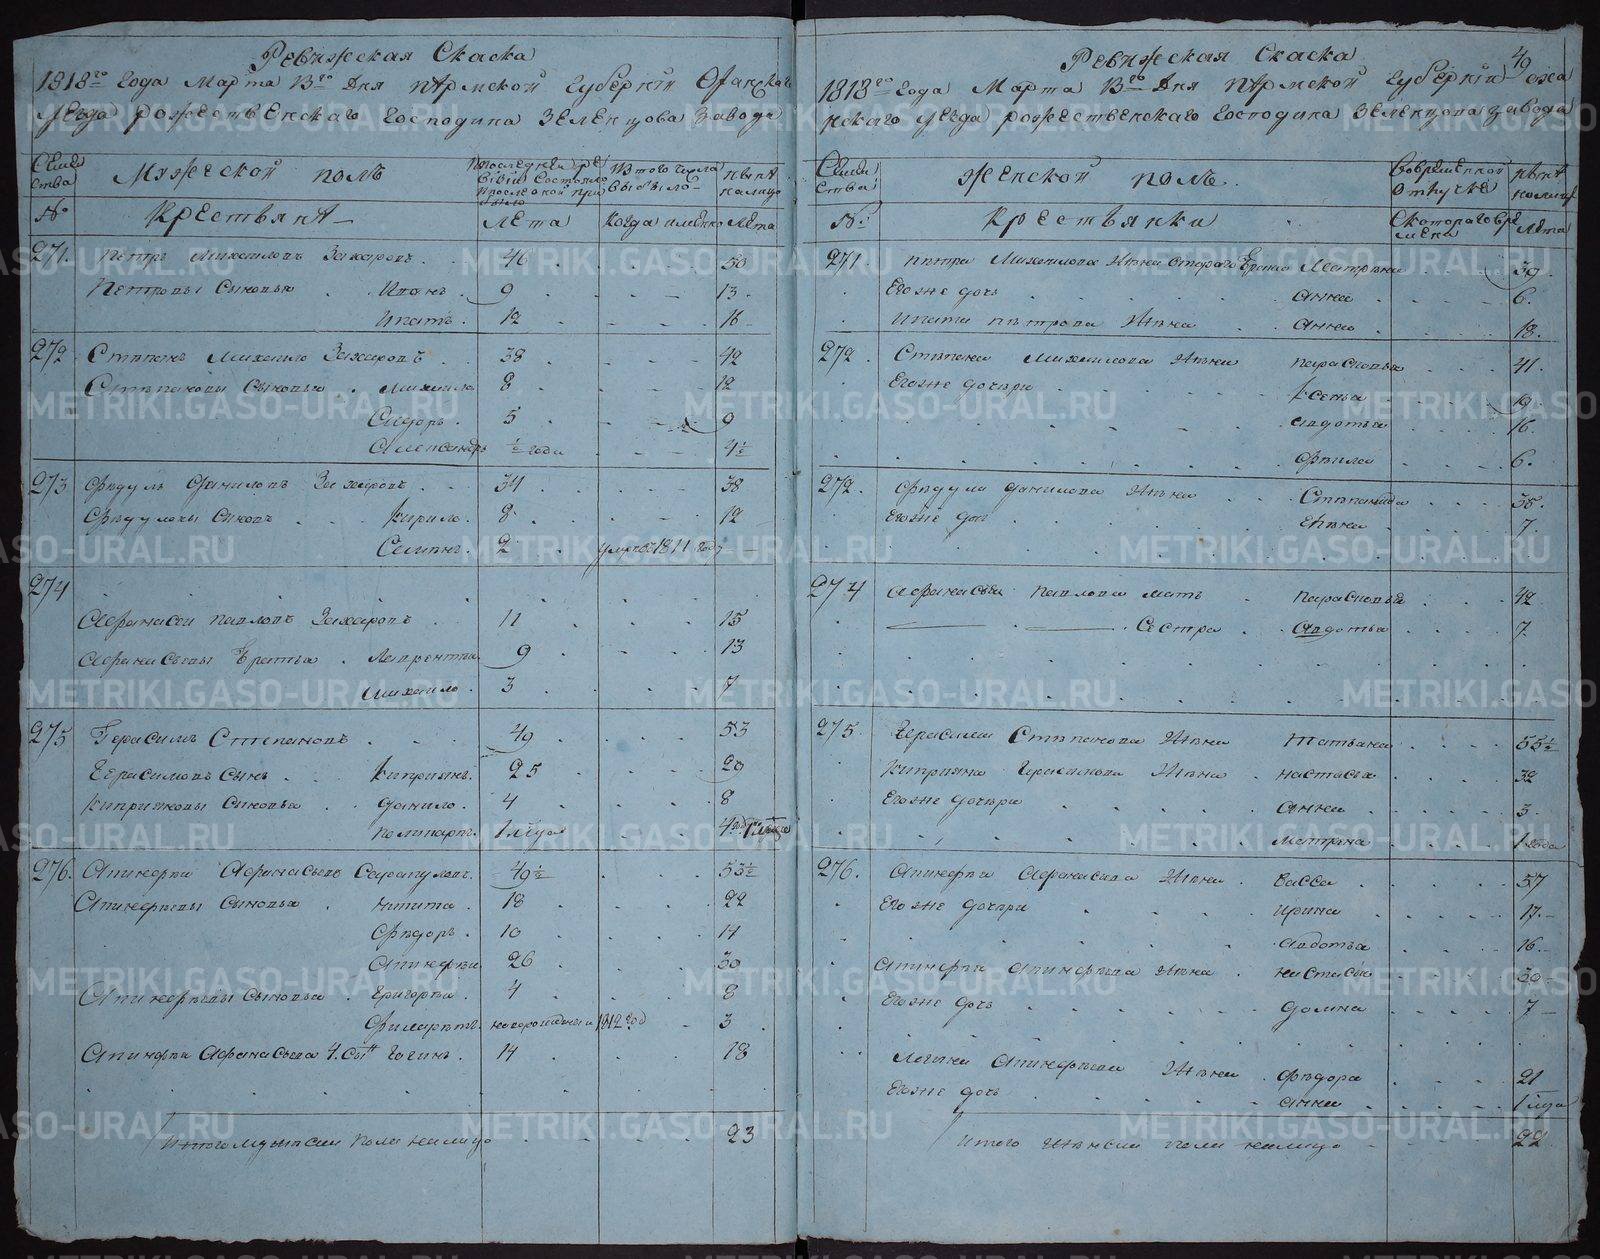 Ревижская Скаска
1818го Года Марта 13го Дня Пермской Губернии Оханскаго
уезда рожественскаго Господина Зеленцова завода
Семей
ства
Мужеской полъ
последней ре
визии состояло
и после оной при
было
Из того числа
выбыло
ныне
налицо
№
Крестьяне
Лета
когда именно
Лета
271. Петръ Михаиловъ Захаровъ 46 50
Петровы сыновья Иванъ 9 13
Игнатъ 12 16
272 Степанъ Михаило Захаровъ 38 42
Степановы сыновья Михаило 8 12
Сидоръ 5 9
Александръ ½ года 4½
273 Федулъ Даниловъ Захаровъ 34 38
Федуловы сыновъ Кирило 8 12
Селиванъ 2 умре въ 1811 году
274
Афанасеи Павловъ Захаровъ 11 15
Афанасьевы братья Лаврентеи 9 13
Михаило 3 7
275 Герасимъ Степановъ 49 53
Герасимовъ сынъ Киприянъ 25 29
Киприяновы сыновья Данило 4 8
Поликарпъ 1 меца
276. Апинерги Афанасьевъ Сарапуловъ 49½ 53½
сыновья Никита 18 22
Федоръ 10 14
26 30
сыновья Григореи 4 8
Филаретъ новорожденны 1812 год 3
Афанасьева 4. сынъ Логинъ 14 18
Итого мужеска пола налицо 23
49
Ревижская Скаска
1818го Года Марта 13го Дня Пермской Губернии Оха
нскаго уезда рожественскаго Господина Зеленцова завода
Семей
ства
Женской полъ
Вовременной
отлучке
ныне
налицо
№
Крестьянки
Скотораго вре
мени
Лета
271. Петра Михаилова жена Матрена 39
Егоже дочь Анна 6.
Игната Петрова жена Анна 18.
272. Степана Михаилова жена Парасковья 41.
Егоже дочери Ксенья 19.
Авдотья 16.
6.
272. Федула Данилова жена Степанида 38.
Егоже доч Елена 7.
274 Афанасья Павлова мать Парасковья 42
Сестра Авдотья 7.
275. Герасима Степанова жена Татьяна 55½
Киприяна Герасимова жена Настасья 32
Егоже дочери Анна 3.
Матрена 1 года
276. Афанасьева жена Васса 57
Егоже дочери Ирина 17.
Авдотья 16.
жена Настасья 30
Егоже дочь Домна 7
Логина жена Федора 21
Егоже дочь Анна 1 меца
Итого женска пола налицо 22